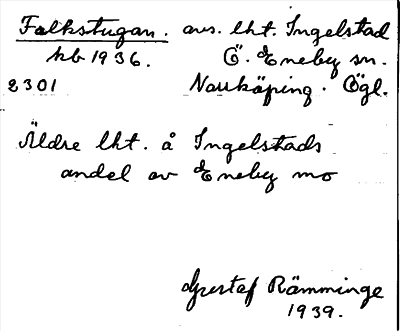 Falkstugan. avs. lht. Ingelstad
kb 1936. Ö. Eneby sn.
2301 Norrköping. Ögl.
Äldre lht. å Ingelstads
andel av Eneby mo
Gustaf Rämminge
1939.